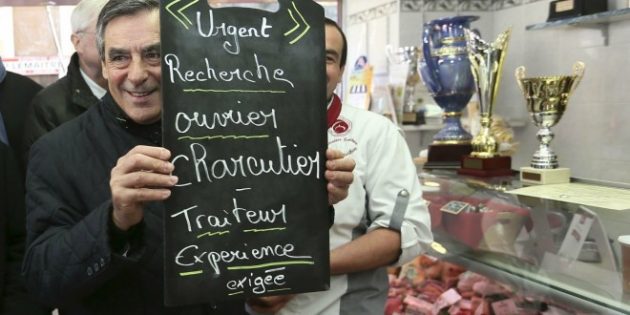 Urgent
Recherche
ouvrier
charcutier
- Traiteur
Experience
exigée